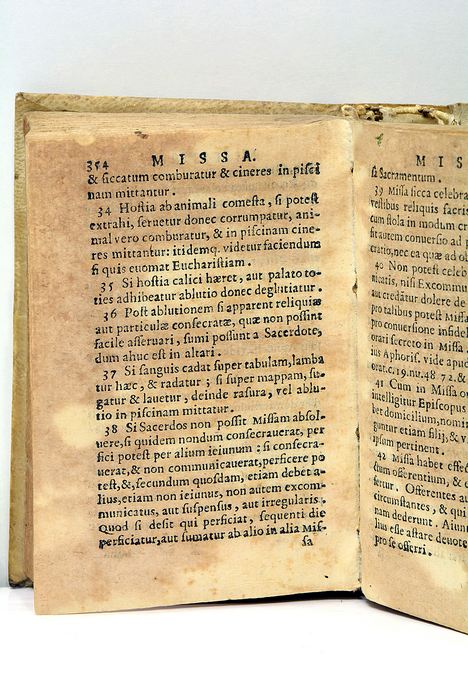 354 MISSA.
& siccatum comburatur & cineres in pisci
nam mittantur.
34 Hostia ab animali comesta, si potest
extrahi, seruetur donec corrumpatur, ani-
mal vero comburatur, & in piscinam cine-
res mittantur: itidemq. videtur faciendum
si quis euomat Eucharistiam.
35 Si hostia calici hæret, aut palato to-
ties adhibeatur ablutio donec deglutiatur.
36 Post ablutionem si apparent reliquiæ
aut particulæ consecratæ, quæ non possint
facile asseruari, sumi possunt a Sacerdote,
dum ahuc est in altari.
37 Si sanguis cadat super tabulam, lamba
tur hæc, & radatur; si super mappam, su-
gatur & lauetur, deinde rasura, vel ablu-
tio in piscinam mittatur.
38 Si Sacerdos non possit Missam absol-
uere, si quidem nondum consecrauerat, per
fici potest per alium ieiunum: si consecra-
uerat, & non communicauerat, perficere po
test, &, secundum quosdam, etiam debet a-
lius, etiam non ieiunus, non autem excom-
municatus, aut suspensus, aut irregularis.
Quod si desit qui perficiat, sequenti die
perficiatur, aut sumatur ab alio in alia Mis-
sa
MIS
sa Sacramentum.
39 Missa sicca celebra
vestibus reliquis sacri
cum stola in modum cr
sit autem conuersio ad p
cratio, nec ea quæ ad ob
40 Non potest celeb
nicatis, nisi Excommu
aut credatur dolere de
pro talibus potest Missa
pro conuersione infidel
orari secreto in Missa
us Aphoris. vide apud
orat. c. 19. nu. 48 72. &
41 Cum in Missa o
intelligitur Episcopus
bet domicilium, nomi
guntur etiam filij, & v
ipsum pertinent.
42 Missa habet effe
dum offerentium, & e
fertur. Offerentes a
circumstantes, & qui
nam dederunt. Aiun
lius esse astare deuote
pro se offerri.